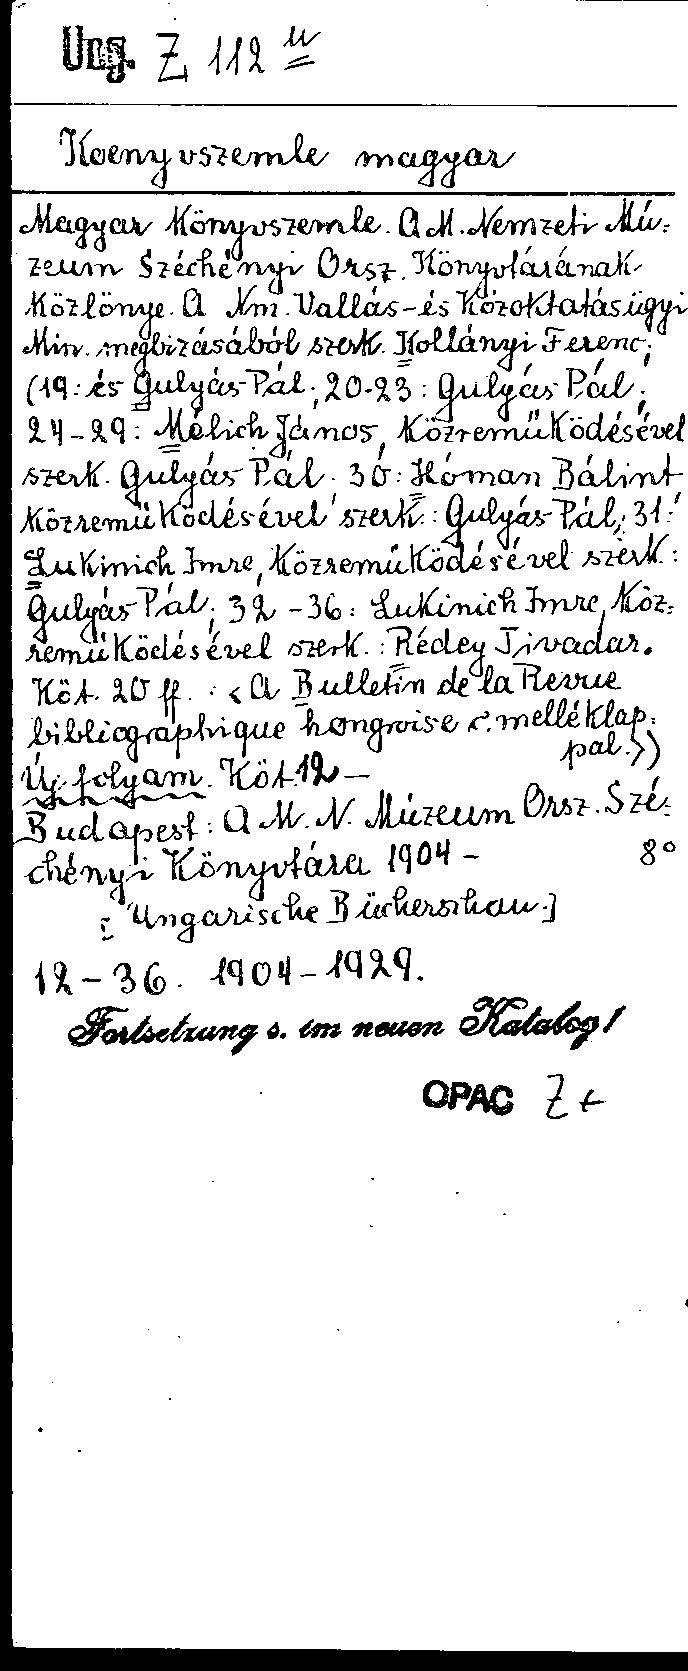 Ung. Z 112 u
Koenyvszemle magyar
Magyar Könyvszemle. A M. Nemzeti Mú-
zeum Széchényi Orsz. Könyvtárának
Közlönye. A Nm. Vallás-és Közoktatásügyi
Min. megbizásából szerk. Kollányi Ferenc;
(19: és Gulyás Pál; 20-23: Gulyás Pál;
24-29: Melich János, Közremüködésével
szerk. Gulyás Pál. 30: Hóman Bálint
Közremüködésével szerk: Gulyás Pál; 31:
Lukinich Imre, Közremüködésével szerk:
Gulyás Pál; 32-36: Lukinich Imre, Köz-
remüködésével szerk.: Rédey Tivadar.
Köt. 20 ff. : <A Bulletin de la Revue
bibliographique hongroise c. melléklap-
pal.>)
Új folyam. Köt. 12 -
Budapest: A M. N. Múzeum Orsz. Szé-
chényi Könyvtára 1904 - 8°
[Ungarische Bücherschau.]
12-36. 1904-1929.
Fortsetzung s. im neuen Katalog!
OPAC Z+